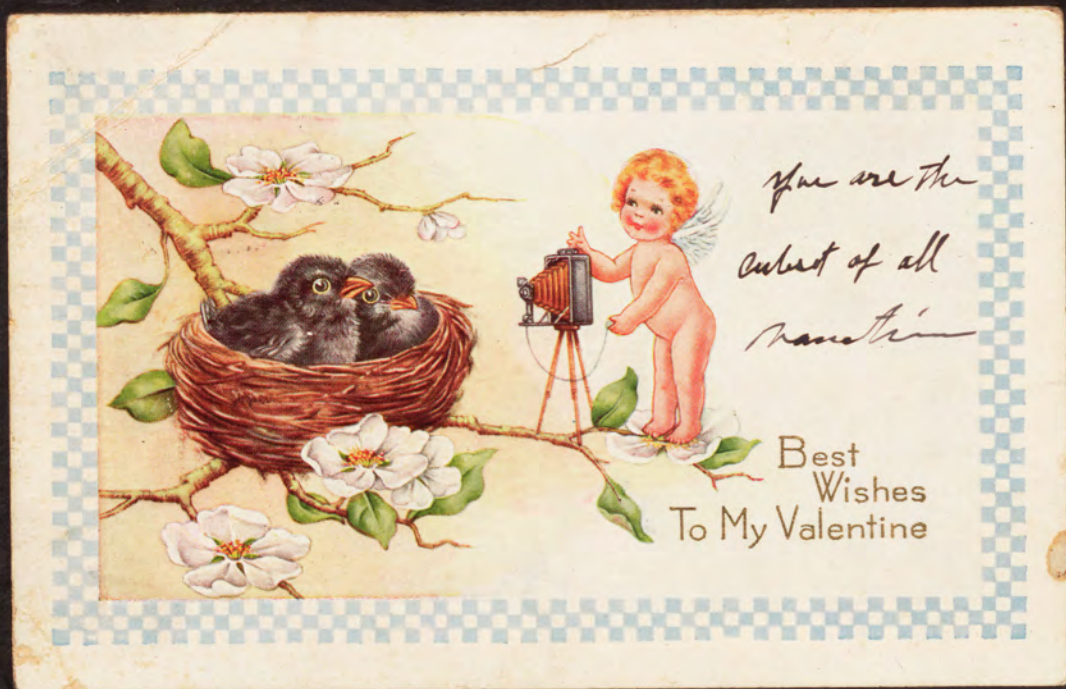 you are the
cutest of all
Best
Wishes
To My Valentine